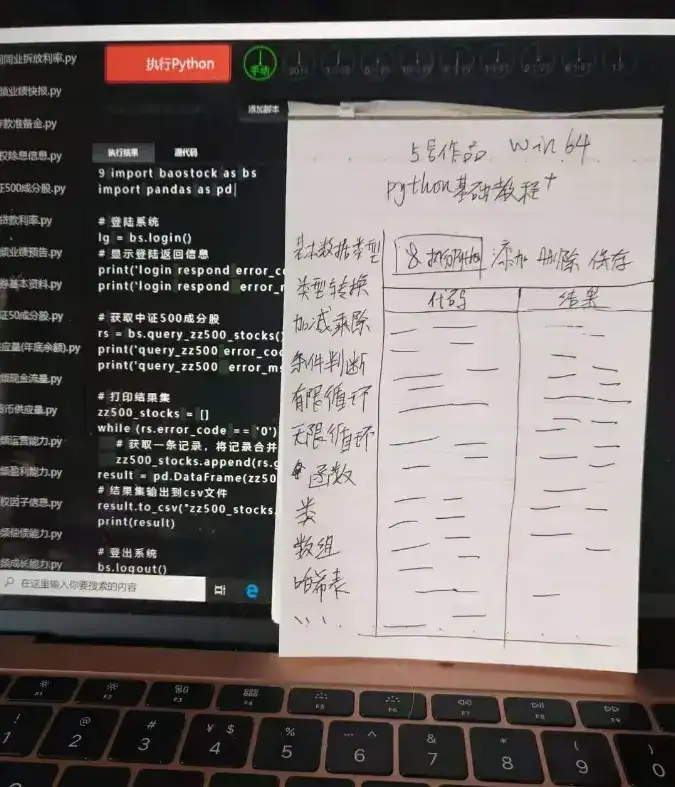 同业拆放利率.py
业绩快报.py
存款准备金.py
权除息信息.py
证500成分股.py
贷款利率.py
业绩预告.py
券基本资料.py
证50成分股.py
应量(年底余额).py
频现金流量.py
货币供应量.py
频运营能力.py
频盈利能力.py
权因子信息.py
频偿债能力.py
频成长能力.py
执行Python
手动
添加脚本
执行结果 源代码
9 import baostock as bs
import pandas as pd
# 登陆系统
lg = bs.login()
# 显示登陆返回信息
print('login respond error_co
print('login respond error_m
# 获取中证500成分股
rs = bs.query_zz500_stocks()
print('query_zz500 error_cod
print('query_zz500 error_ms
# 打印结果集
zz500_stocks = []
while (rs.error_code == '0')
# 获取一条记录，将记录合并
zz500_stocks.append(rs.g
result = pd.DataFrame(zz50
# 结果集输出到csv文件
result.to_csv("zz500_stocks.
print(result)
# 登出系统
bs.logout()
在这里输入你要搜索的内容
5号作品 Win 64
python基础教程+
基本数据类型
执行Python 添加 删除 保存
类型转换
代码 结果
加减乘除
条件判断
有限循环
无限循环
函数
类
数组
哈希表
F1 F2 F3 F4 F5 F6 F7 F8 F9
! @ # ¥ $ % … ^ & * ( )
1 2 3 4 5 6 7 8 9 0